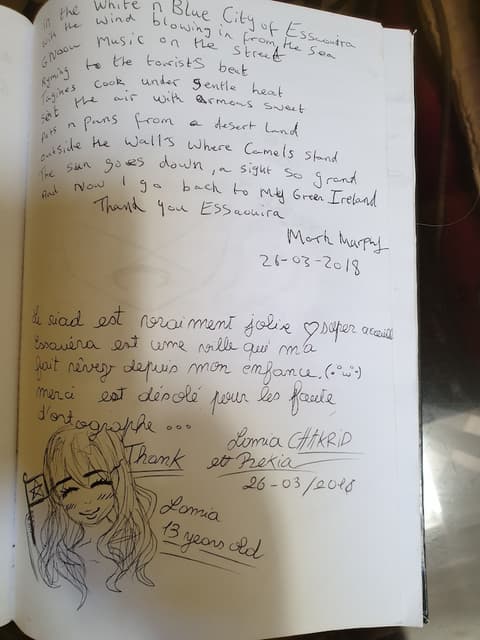 In the White n Blue City of Essaouira
with the wind blowing in from the sea
GNaou Music on the street
Ryming to the tourists beat
Tagines cook under gentle heat
sent the air with armous sweet
Pots n pans from a desert land
outside the Walls where Camels stand
The sun goes down, a sight so grand
And Now I go back to My Green Ireland
Thank you Essaouira
Mark Murphy
26-03-2018
Le riad est vraiment jolie ♡ super accueil
Essauéra est une ville qui m'a
fait rêver depuis mon enfance.
merci est désolé pour les faute
d'ortographe ...
Lamia CHAKRiD
Thank et Rekia
26-03/2018
Lamia
13 years old